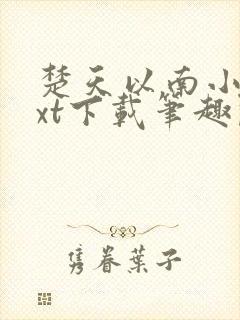 楚天以南小
xt下载笔趣
隽眷叶子